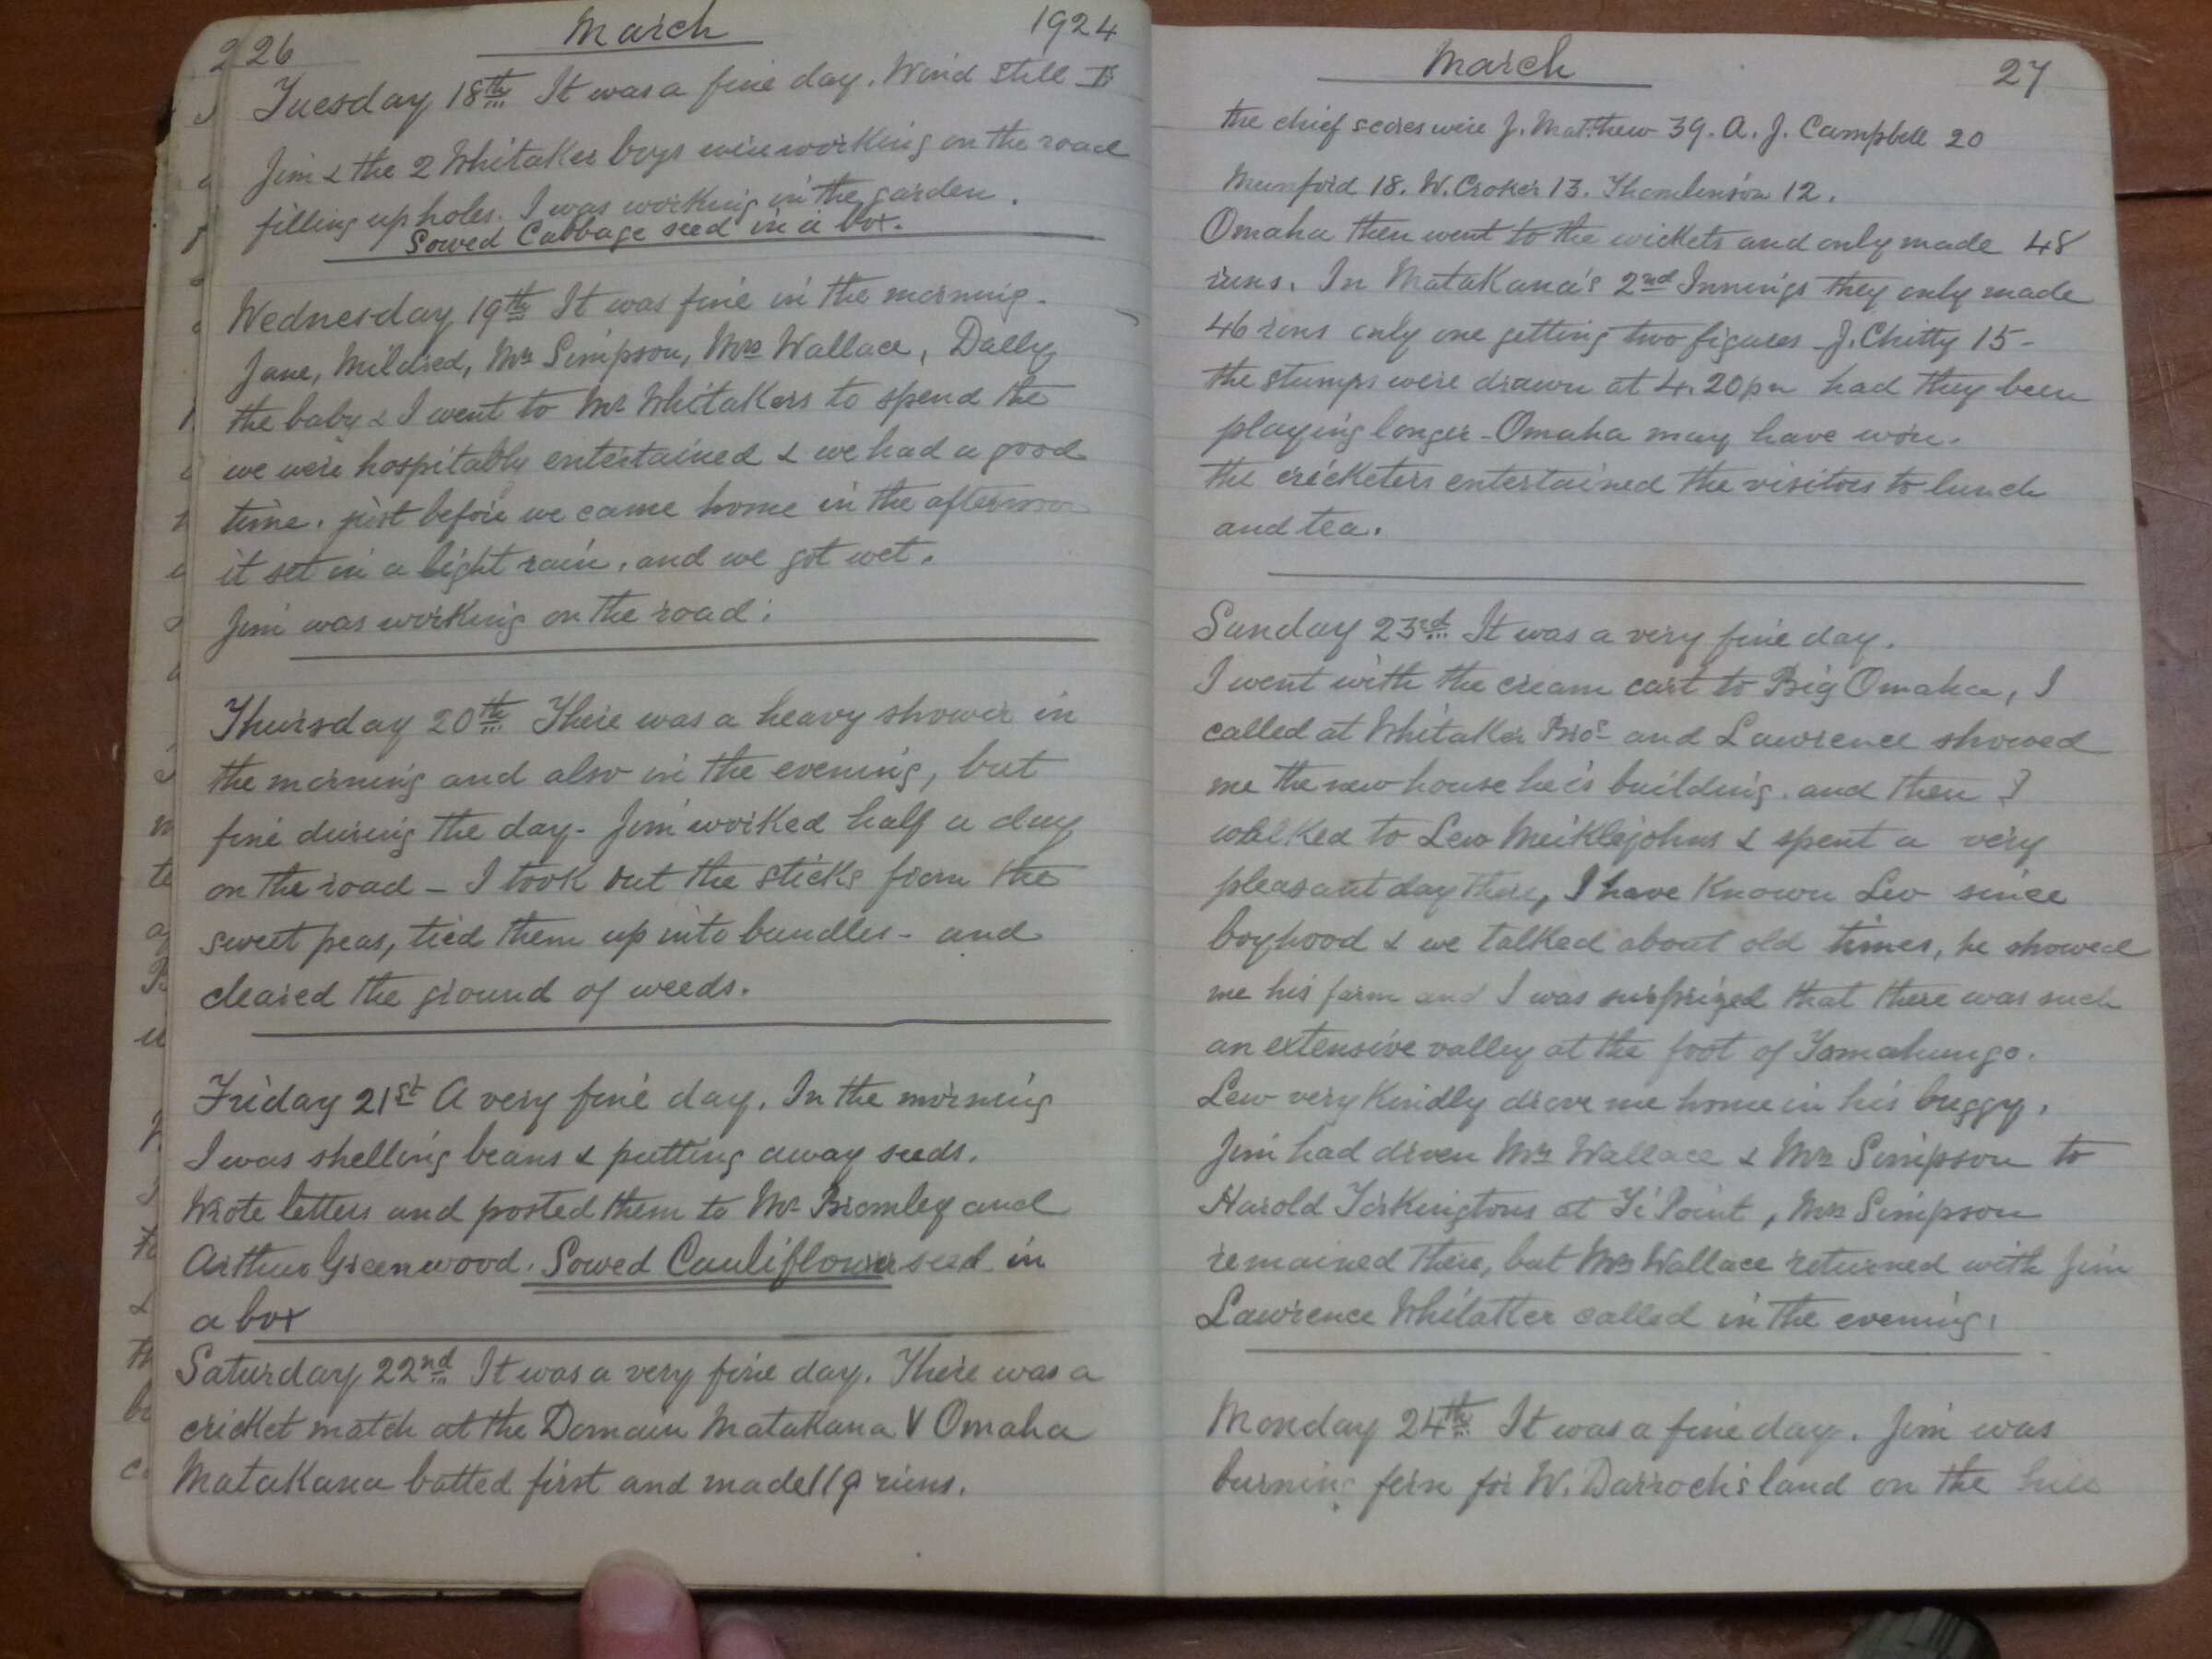 26 March 1924
Tuesday 18th It was a fine day. Wind still E
Jim & the 2 Whitaker boys were working on the road
filling up holes. I was working in the garden.
Sowed Cabbage seed in a box.
Wednesday 19th It was fine in the morning.
Jane, Mildred, Mrs Simpson, Mrs Wallace, Dally
the baby & I went to Mr Whitakers to spend the
we were hospitably entertained & we had a good
time. just before we came home in the afternoon
it set in a light rain, and we got wet.
Jim was working on the road.
Thursday 20th There was a heavy shower in
the morning and also in the evening, but
fine during the day - Jim worked half a day
on the road - I took out the sticks from the
sweet peas, tied them up into bundles - and
cleared the ground of weeds.
Friday 21st A very fine day. In the morning
I was shelling beans & putting away seeds.
Wrote letters and posted them to Mr Bromley and
Arthur Greenwood. Sowed Cauliflower seed in
a box
Saturday 22nd It was a very fine day. There was a
cricket match at the Domain Matakana V Omaha
Matakana batted first and made 119 runs.
March 27
the chief scores were J. Matthew 39. A. J. Campbell 20
Munford 18. W. Croker 13. Thomlinson 12.
Omaha then went to the wickets and only made 48
runs. In Matakana's 2nd Innings they only made
46 runs only one getting two figures - J. Chitty 15 -
the stumps were drawn at 4.20pm had they been
playing longer - Omaha may have won.
the cricketers entertained the visitors to lunch
and tea.
Sunday 23rd It was a very fine day.
I went with the cream cart to Big Omaha, I
called at Whitaker Bros and Lawrence showed
me the new house he is building. and then I
walked to Lew Meiklejohns & spent a very
pleasant day there, I have known Lew since
boyhood & we talked about old times, he showed
me his farm and I was surprized that there was such
an extensive valley at the foot of Tamahunga.
Lew very kindly drove me home in his buggy.
Jim had driven Mrs Wallace & Mrs Simpson to
Harold Torkingtons at Ti Point, Mrs Simpson
remained there, but Mrs Wallace returned with Jim
Lawrence Whitatter called in the evening.
Monday 24th It was a fine day. Jim was
burning fern for W. Darroch's land on the hill